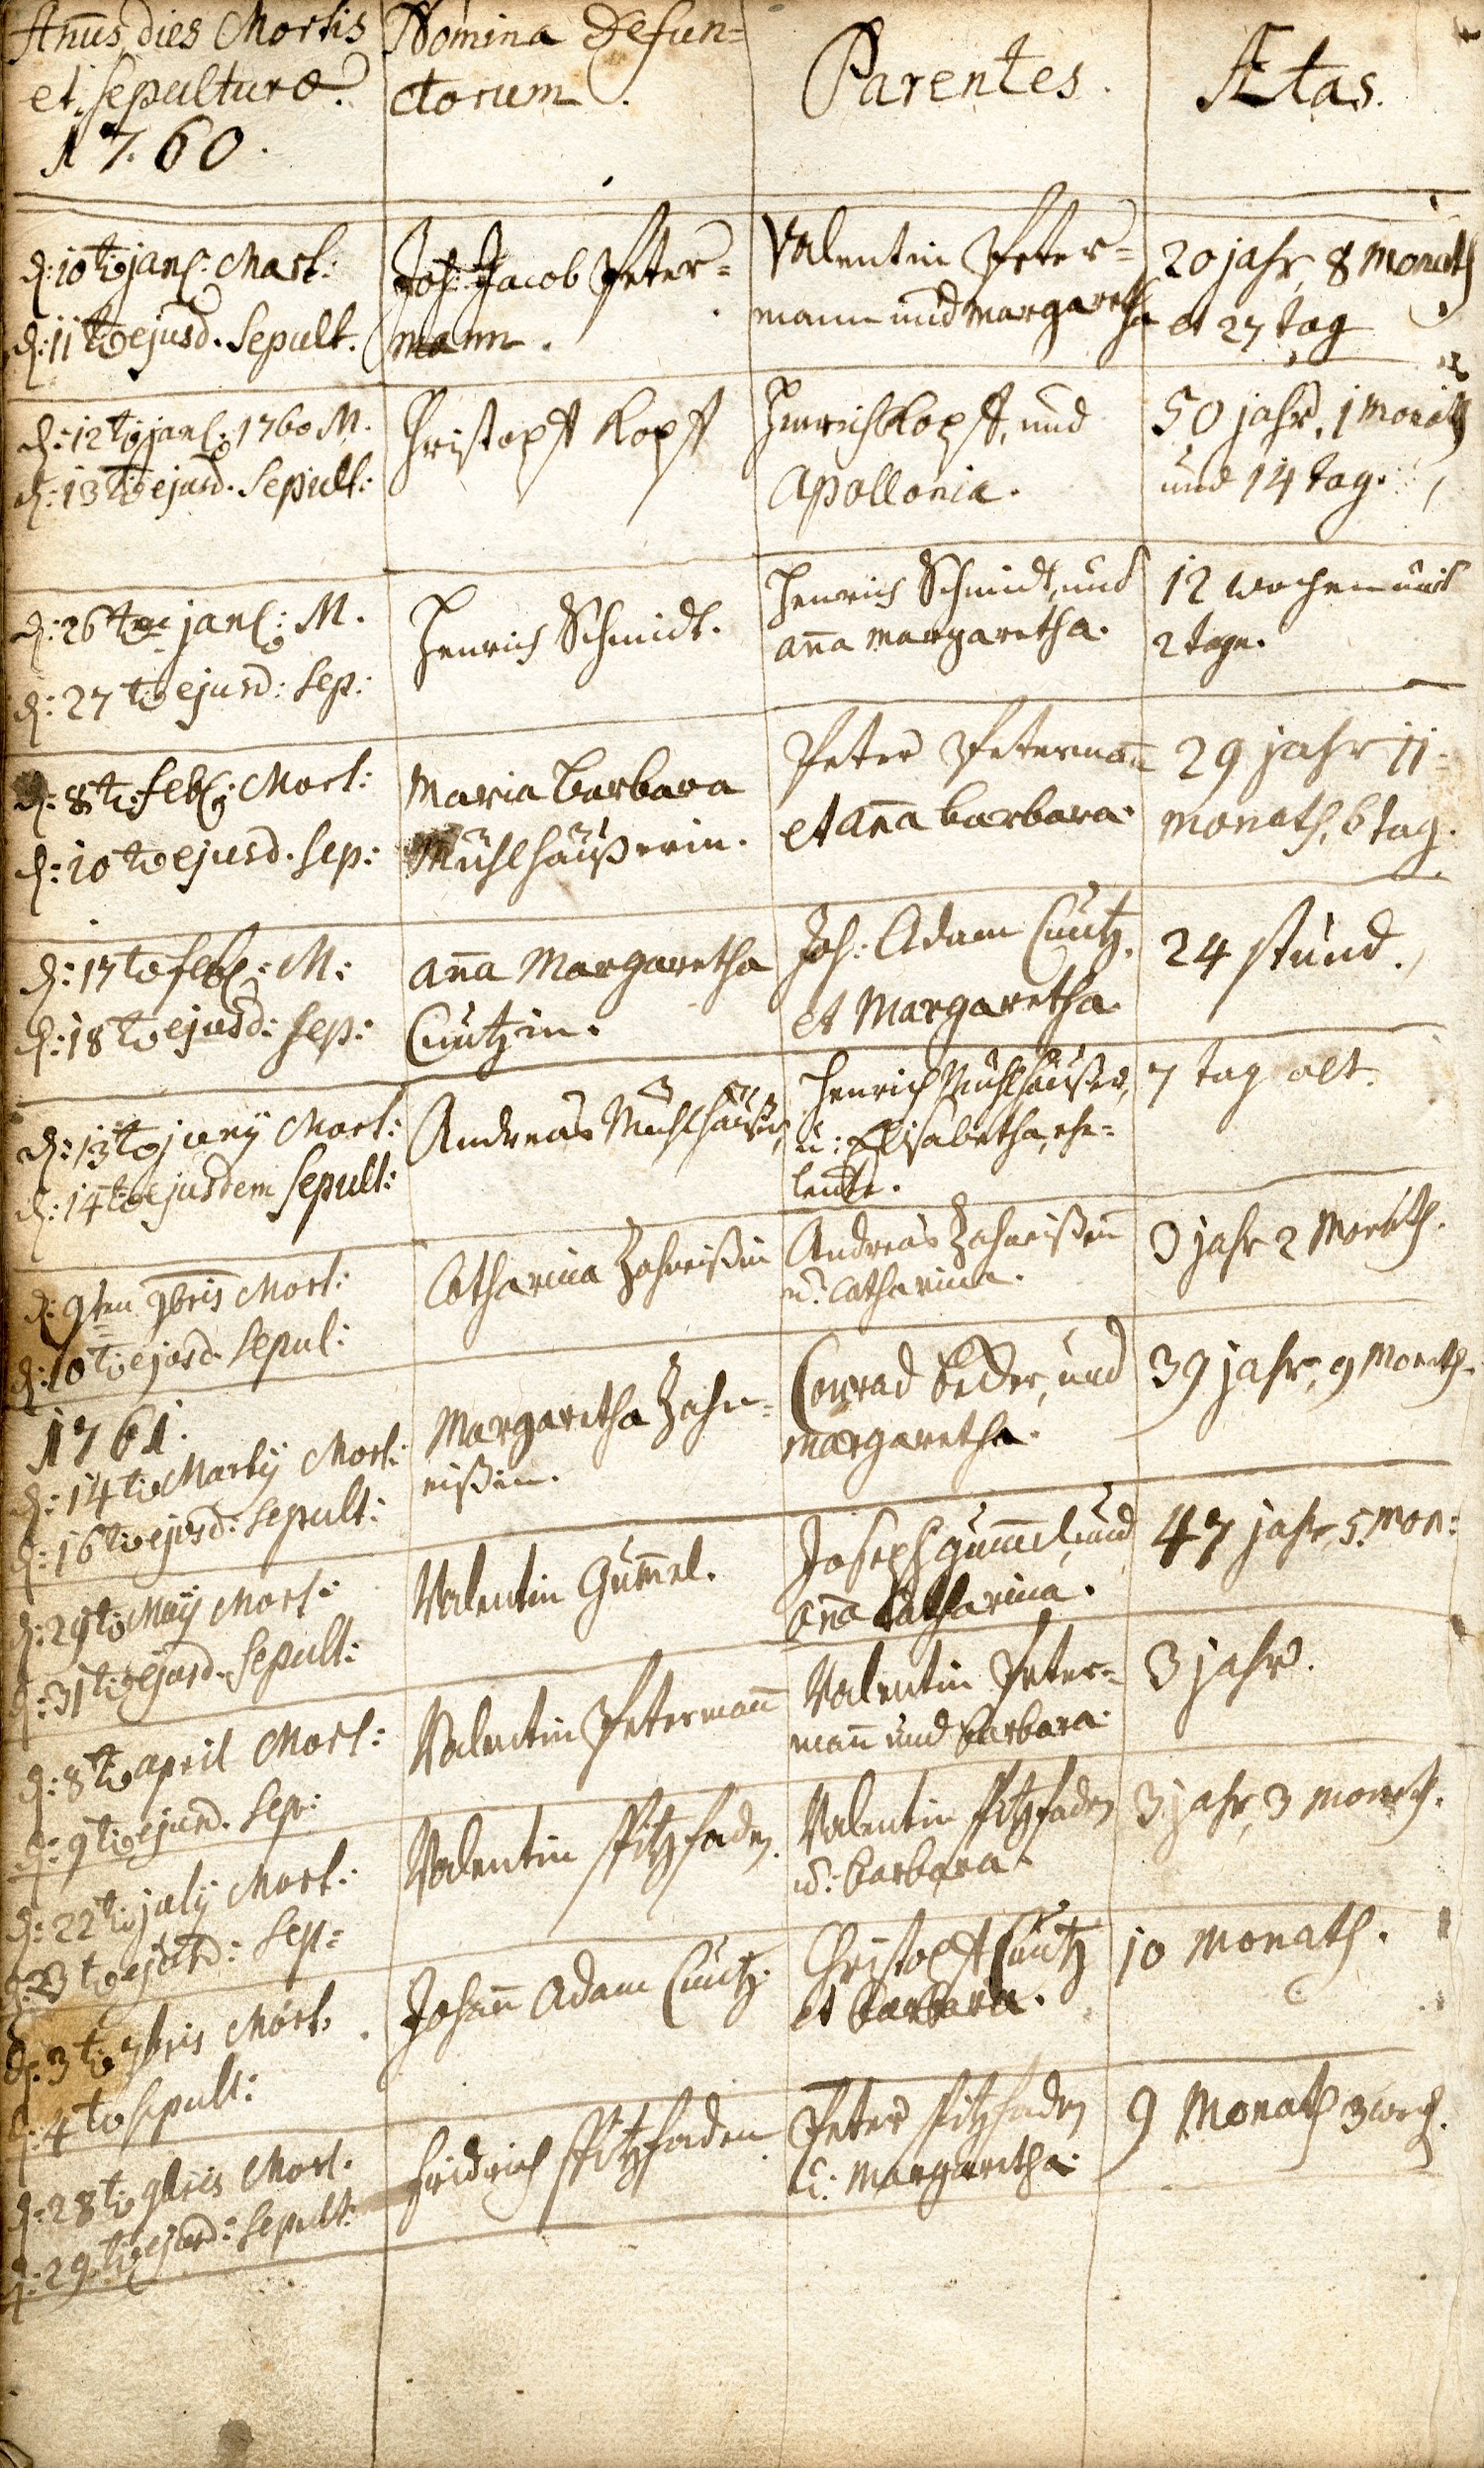 Añus, dies Mortis
et Sepulturæ.
1760.
Nomina Defun=
ctorum.
Parentes.
Ætas.
d: 10t janˡ: Mort:
d: 11t ejusd. Sepult.
Joh: Jacob Peter=
mann.
Valentin Peter=
mann und margaretha
20 jahr, 8 Monath
et 27 tag
d: 12t janˡ: 1760 M.
d: 13t ejusd. Sepult:
Christoph Kopff
Henrich Kopff, und
Apollonia.
50 jahr, 1 Monath
und 14 tag.
d: 26t janˡ: M.
d: 27t ejusd: Sep:
Henrich Schmidt.
Henrich Schmidt, und
aña margaretha.
12 wochen und
2 tage.
d: 8t febˡ: Mort:
d: 10t ejusd. Sep:
Maria Barbara
Mühlhäußerin.
Peter Petermañ
et aña barbara.
29 jahr 11
monath, 6 tag.
d: 17t febˡ: M:
d: 18t ejusd: Sep:
aña Margaretha
Cuntzin.
Joh: Adam Cuntz.
et Margaretha.
24 stund.
d: 13t juny Mort:
d: 14t ejusdem Sepult:
Andreas Mühlhäußer
Henrich Mühlhäußer,
u: Elisabetha, ehe=
leuthe.
7 tag alt.
d: 9ten 9bris Mort:
d: 10t ejusd. Sepul:
Catharina Zahneißin
Andreas Zahneißen
u: Catharina.
3 jahr 2 Monath.
1761.
d: 14t Martij Mort:
d: 16t ejusd: Sepult:
Margaretha Zahn=
eißin.
Conrad Beder, und
margaretha.
39 jahr, 9 Monath.
d: 29t Maij Mort:
d: 31t ejusd. Sepult:
Valentin Gum̃el.
Joseph Gum̃el, und
aña Catharina.
47 jahr, 5. Mon:
d: 8t april Mort:
d: 9t ejusd. Sep:
Valentin Petermañ
Valentin Peter=
mañ und barbara.
3 jahr.
d: 22t july Mort:
d: 23t ejusd: Sep:
Valentin Pitzfaden.
Valentin Pitzfaden
u: barbara.
3 jahr, 3 monath.
d: 3t 7bris Mort:
d: 4t Sepult:
Johañ Adam Cuntz.
Christoph Cuntz
et barbara.
10 Monath.
d: 28t 9bris Mort.
d: 29t ejusd: Sepult:
Fridrich Pitzfaden.
Peter Pitzfaden
u: Margaretha.
9 Monath 3 woch.